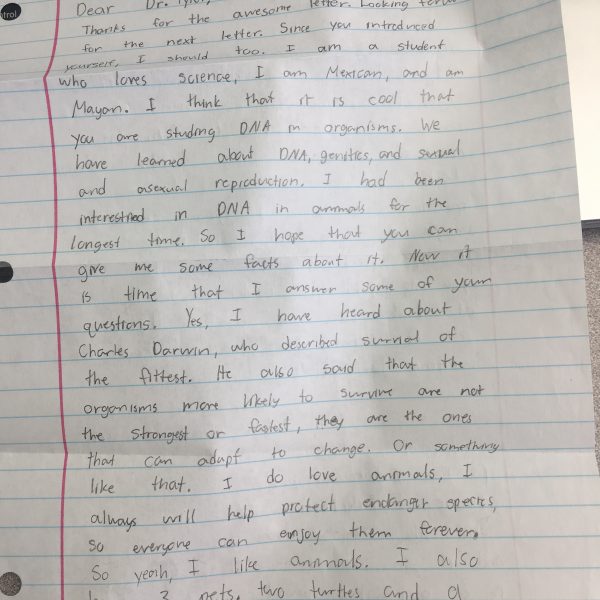 trol
Dear Dr.
Thanks for the awesome letter. Looking
for the next letter. Since you introduced
yourself, I should too. I am a student
who loves science, I am Mexican, and am
Mayan. I think that it is cool that
you are studing DNA in organisms. We
have learned about DNA, genitics, and sexual
and asexual reproduction. I had been
in DNA in animals for the
longest time. So I hope that you can
give me some facts about it. Now it
is time that I answer some of your
questions. Yes, I have heard about
Charles Darwin, who described survial of
the fittest. He also said that the
organisms more likely to survive are not
the strongest or fastest, they are the ones
that can adapt to change. Or something
like that. I do love animals, I
always will help protect endanger species,
so everyone can enjoy them forever.
So yeah, I like animals. I also
3 pets, two turtles and a